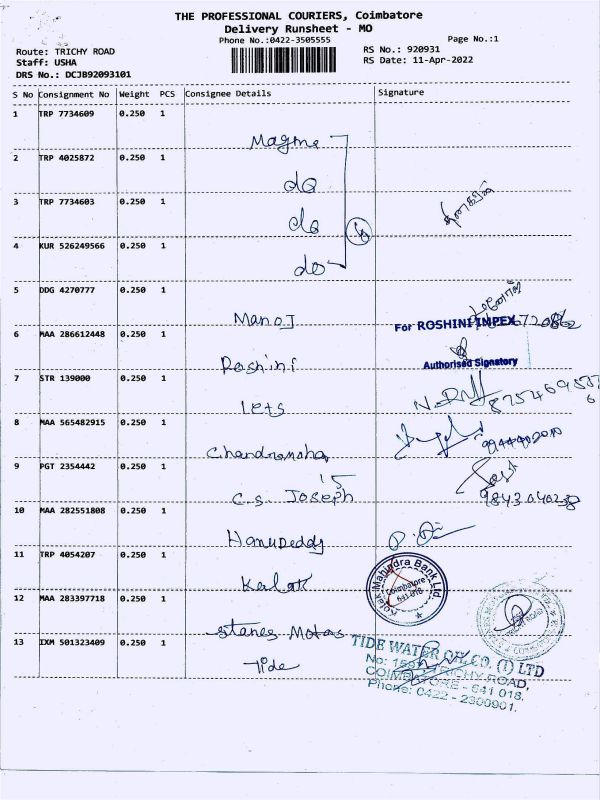 THE PROFESSIONAL COURIERS, Coimbatore
Delivery Runsheet - MO
Phone No.:0422-3505555
Page No.:1
Route: TRICHY ROAD
Staff: USHA
DRS No.: DCJB92093101
RS No.: 920931
RS Date: 11-Apr-2022
S No Consignment No Weight PCS Consignee Details Signature
1 TRP 7734609 0.250 1
Magma
2 TRP 4025872 0.250 1
do
3 TRP 7734603 0.250 1
do
4 KUR 526249566 0.250 1
do
5 DDG 4270777 0.250 1
Manoj
For ROSHINI INPEX
6 MAA 286612448 0.250 1
Authorised Signatory
Roshini
7 STR 139000 0.250 1
Lets
8 MAA 565482915 0.250 1
Chandramoha
9 PGT 2354442 0.250 1
15
C.S. Joseph 9843040238
10 MAA 282551808 0.250 1
Hanureddy
11 TRP 4054207 0.250 1
Kotak Mahindra Bank Ltd.
Coimbatore
641 018
Kotak
12 MAA 283397718 0.250 1
Stanes Motors
13 IXM 501323409 0.250 1
Tide
TIDE WATER OIL CO. (I) LTD
TRICHY ROAD,
COIMBATORE - 641 018.
Phone: 0422 - 2300901.